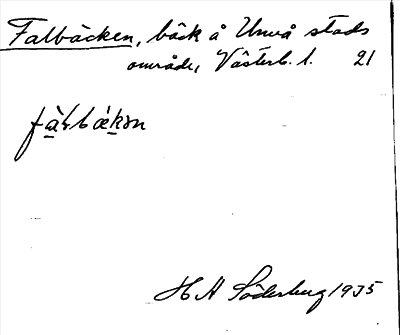 Falbäcken, bäck å Umeå stads
område, Västerb. l. 21
fàɫbǽkən
H A Söderberg 1935